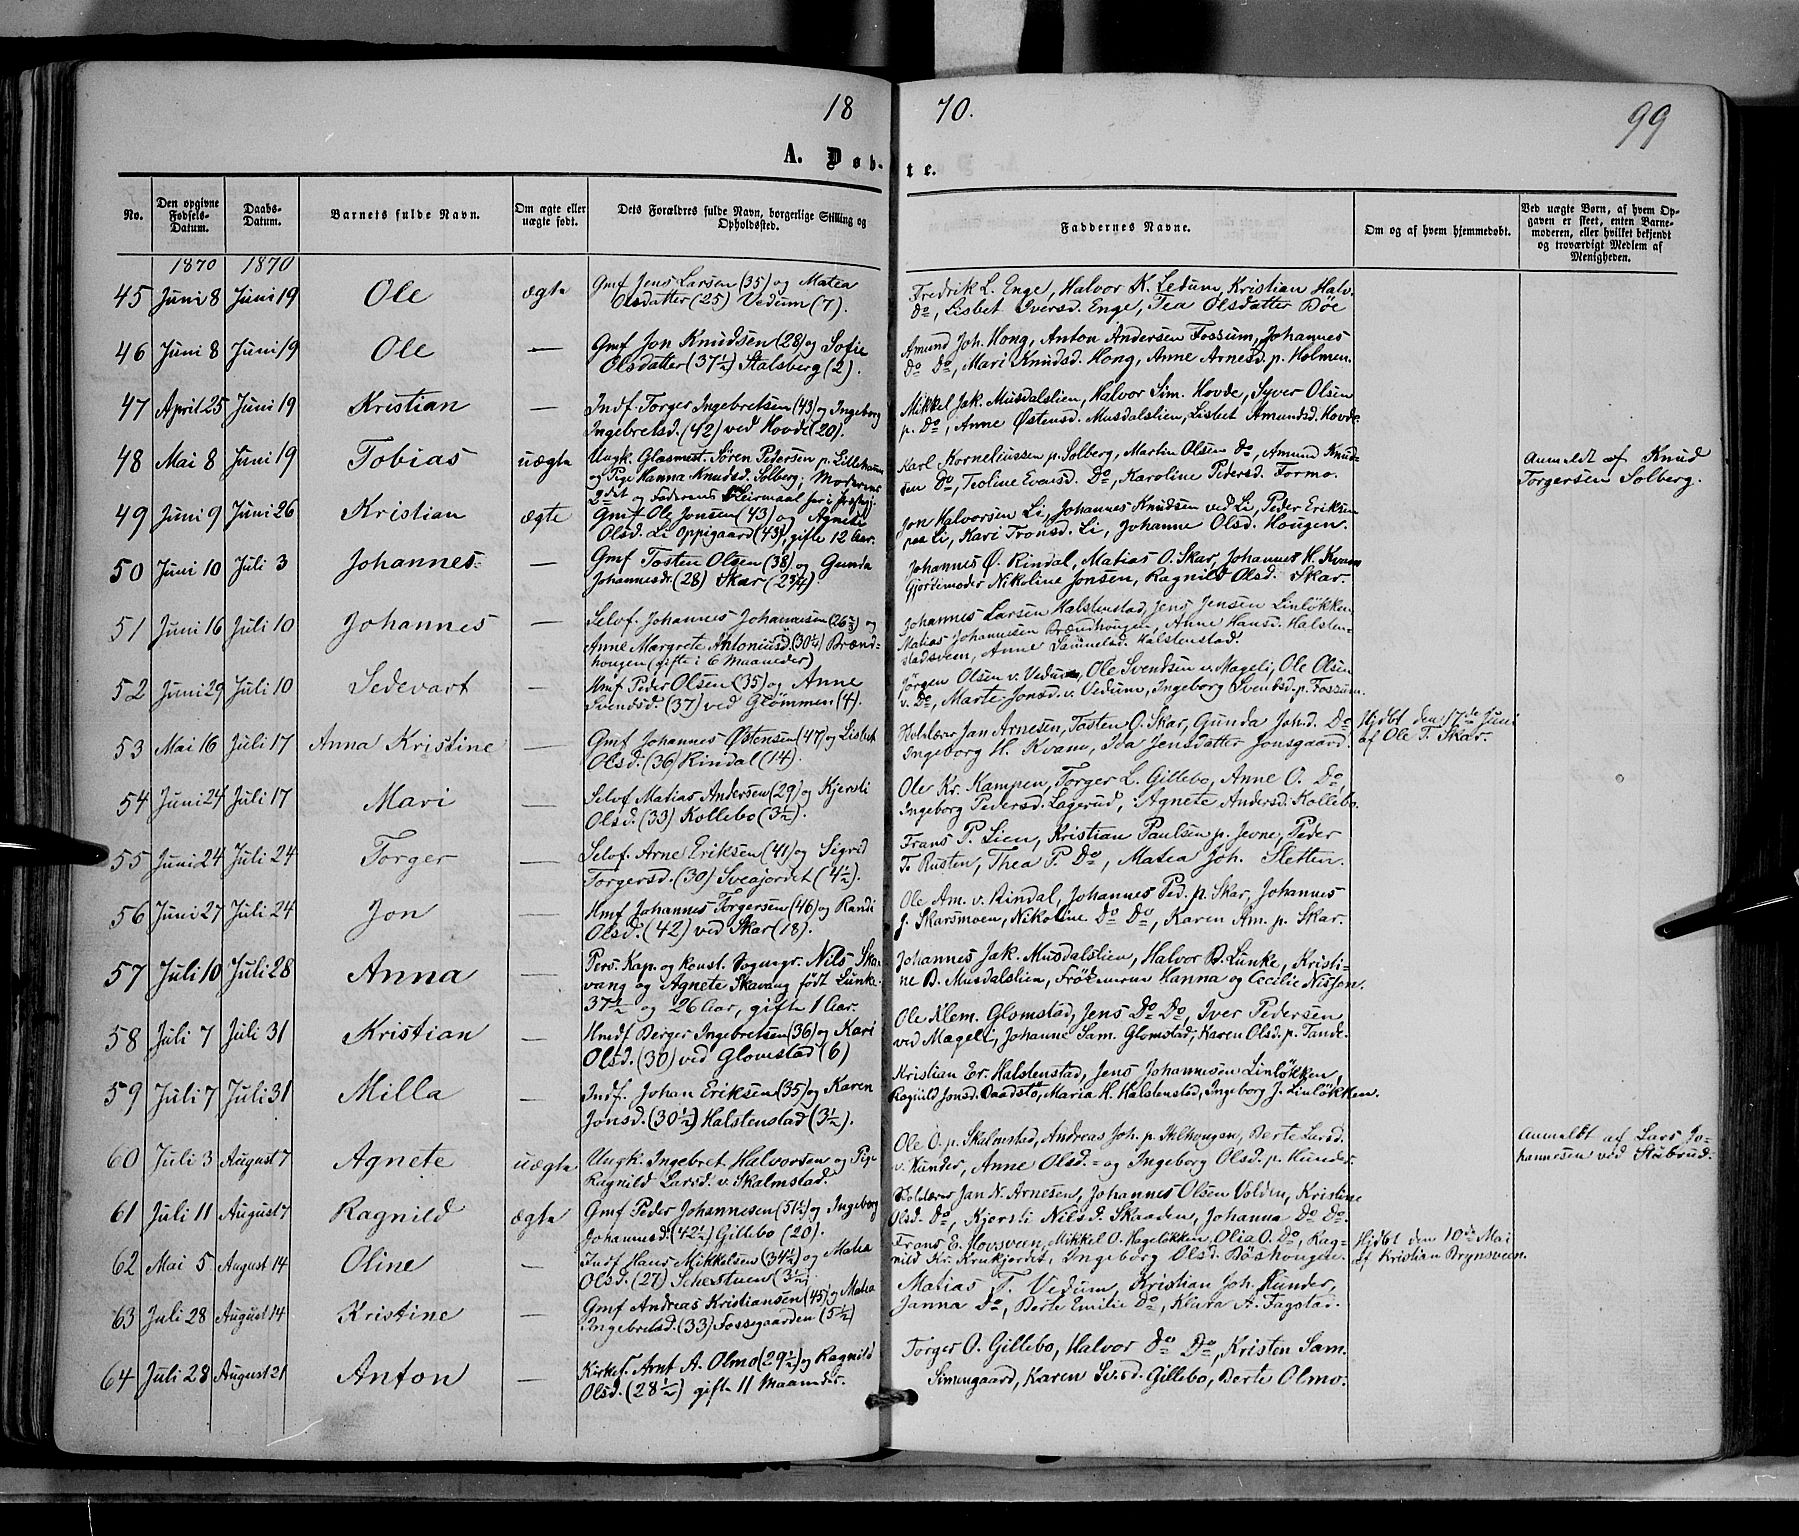 18 70. 99
A. Døb- te.
No.
Den opgivne Fødsels-Datum.
Daabs-Datum.
Barnets fulde Navn.
Om ægte eller uægte født.
Dets Forældres fulde Navn, borgerlige Stilling og Opholdssted.
Faddernes Navne.
Om og af hvem hjemmedøbt.
Ved uægte Børn, af hvem Opgaven er skeet, enten Barnemoderen, eller hvilket bekjendt og troværdigt Medlem af Menigheden.
1870 1870
45 Juni 8 Juni 19 Ole ægte Gmf Jens Larsen (35) og Matea Fredrik L. Enge, Halvor K. Ledum, Kristian Halv.
Olsdatter (25) Vedum (7). Do, Lisbet Iversd. Enge, Tea Olsdatter Bøe
46 Juni 8 Juni 19 Ole — Gmf Jon Knudsen (28) og Sofie Amund Joh. Hong, Anton Andersen Fossum, Johannes
Olsdatter (37½) Stalsberg (2). Do Do, Mari Knudsd. Hong, Anne Arnesd. p. Holmen.
47 April 25 Juni 19 Kristian — Indf. Torger Ingebretsen (43) og Ingeborg Mikkel Jak. Musdalslien, Halvor Sim. Hovde, Syver Olsen
Ingebretsd. (42) ved Hovde (20). p. Do, Anne Østensd. Musdalslien, Lisbet Amundsd. Hovde
48 Mai 8 Juni 19 Tobias uægte Ungk. Glasmest. Søren Pedersen p. Lilleham Karl Korneliussen p. Solberg, Martin Olsen Do, Amund Knud- Anmeldt af Knud
og Pige Hanna Knudsd. Solberg; Moderens sen Do, Teoline Evensd. Do, Karoline Pedersd. Formo. Torgersen Solberg.
2det og Faderens Leirmaal
49 Juni 9 Juni 26 Kristian ægte Gmf Ole Jonsen (43) og Agnete Jon Halvorsen Li, Johannes Knudsen ved Li, Peder Eriksen
Olsd. Li Oppigaard (43), gifte 12 Aar. paa Li, Kari Tronsd. Li, Johanne Olsd. Hougen.
50 Juni 10 Juli 3 Johannes — Gmf Tosten Olsen (38) og Gunda Johannes Ø. Rindal, Matias O. Skar, Johannes H. Kvam
Johannesdr. (28) Skar (2¾) Gjørtemoder Nikoline Jonsen, Ragnild Olsd. Skar.
51 Juni 16 Juli 10 Johannes — Selvf. Johannes Johannesen (26⅔) og Johannes Larsen Halstenstad, Jens Jensen Linløkken
Anne Margrete Antoniusd. (30¼) Brænd- Matias Johannesen Brændhougen, Anne Hansd. Halsten-
hougen (gifte i 6 Maaneder) stadsveen, Anne Samuelsd. Halstenstad.
52 Juni 29 Juli 10 Sedevart — Hmf Peder Olsen (35) og Anne Jørgen Olsen v. Vedum, Ole Svendsen v. Mageli, Ole Olsen
Svendsd. (37) ved Glømmen (4). v. Do, Marte Jonsd. v. Vedum, Ingeborg Svendsd. p. Fossum.
53 Mai 16 Juli 17 Anna Kristine — Gmf Johannes Østensen (47) og Lisbet Holdlærer Jan Arnesen, Tosten O. Skar, Gunda Joh.d. Do Hjdbt den 17de Juni
Olsd. (36) Rindal (14). Ingeborg H. Kvam, Ida Jensdatter Jonsgaard. af Ole T. Skar.
54 Juni 24 Juli 17 Mari — Selvf. Matias Andersen (29) og Kjersti Ole Kr. Kampen, Torger L. Gillebo, Anne O. Do,
Olsd. (33) Kollebo (3½). Ingeborg Pedersd. Lagerud, Agnete Andersd. Kollebo.
55 Juni 24 Juli 24 Torger — Selvf. Arne Eriksen (41) og Sigrid Frans P. Lien, Kristian Paulsen p. Jevne, Peder
Torgersd. (30) Sveajordet (4½). T. Rusten, Thea P. Do, Matea Joh. Sletten.
56 Juni 27 Juli 24 Jon — Hmf Johannes Torgersen (46) og Randi Ole Am. v. Rindal, Johannes Ped. p. Skar, Johannes
Olsd. (42) ved Skar (18). J. Skarsmoen, Nikoline Do Do, Karen Am. p. Skar.
57 Juli 10 Juli 28 Anna — Pers. Kap. og konst. Sognepr. Nils Ska- Johannes Jak. Musdalslien, Halvor B. Lunke, Kristi-
vang og Agnete Skavang født Lunke ne B. Musdalslien, Frøknerne Hanna og Cecilie Nissen.
37½ og 26 Aar, gifte 1 Aar.
58 Juli 7 Juli 31 Kristian — Hmdf Berger Ingebretsen (36) og Kari Ole Klem. Glomstad, Jens Do Do, Iver Pedersen
Olsd. (30) ved Glomstad (6) ved Mageli, Johanne Sam. Glomstad, Karen Olsd. p. Tande.
59 Juli 7 Juli 31 Milla — Indf. Johan Eriksen (35) og Karen Kristian Er. Halstenstad, Jens Johannesen Linløkken,
Jonsd. (30½) Halstenstad (3½). Ragnild Jonsd. Baadstø, Maria H. Halstenstad, Ingeborg J. Linløkken.
60 Juli 3 August 7 Agnete uægte Ungk. Ingebret Halvorsen og Pige Ole O. p. Skalmstad, Andreas Joh. p. Ihlhougen, Berte Larsd. Anmeldt af Lars Jo-
Ragnild Larsd. v. Skalmstad. v. Kunder, Anne Olsd. og Ingeborg Olsd. p. Kunder. hannesen ved Stubrud.
61 Juli 11 August 7 Ragnild ægte Gmf Peder Johannesen (51½) og Ingeborg Holdlærer Jan N. Arnesen, Johannes Olsen Volden, Kristine
Johannesd. (42½) Gillebo (20). Olsd. Do, Kjersti Nilsd. Skaaden, Johanna Do Do.
62 Mai 5 August 14 Oline — Indf Hans Mikkelsen (34½) og Matea Frans E. Hovsveen, Mikkel O. Hagelikken, Olia O. Do, Rag- Hjdbt den 10de Mai
Olsd. (27) (3½). nild Kr. Krukjordet, Ingeborg Olsd. Bøshougen. af Kristian Brynsveen.
63 Juli 28 August 14 Kristine — Gmf Andreas Kristiansen (45) og Matea Matias T. Vedum, Kristian Joh. Kunder,
Ingebretsd. (33) Fossegaarden (5½) Janna Do, Berte Emilie Do, Klara A. Fagstad.
64 Juli 28 August 21 Anton — Kirkes. Arnt A. Olmo (29½) og Ragnild Torger O. Gillebo, Halvor Do Do, Kristen Sam.
Olsd. (28½) gifte 11 Maaneder. Simengaard, Karen Sv.sd. Gillebo, Berte Olmo.